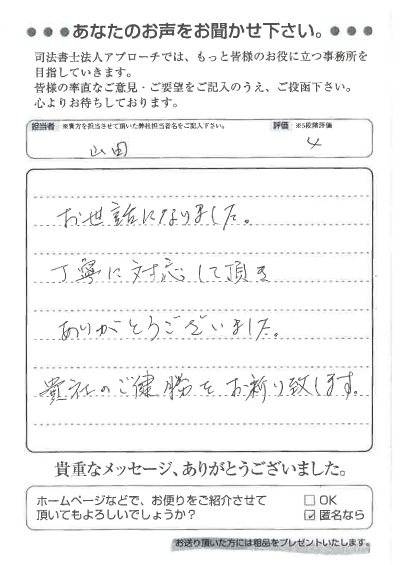 ●●●●あなたのお声をお聞かせ下さい。●●●●
司法書士法人アプローチでは、もっと皆様のお役に立つ事務所を
目指していきます。
皆様の率直なご意見・ご要望をご記入のうえ、ご投函下さい。
心よりお待ちしております。
担当者 ※貴方を担当させて頂いた弊社担当者名をご記入下さい。 評価 ※5段階評価
山田 4
お世話になりました。
丁寧に対応して頂き
ありがとうございました。
貴社のご健勝をお祈り致します。
貴重なメッセージ、ありがとうございました。
ホームページなどで、お便りをご紹介させて
頂いてもよろしいでしょうか？
□ OK
☑ 匿名なら
お送り頂いた方には粗品をプレゼントいたします。